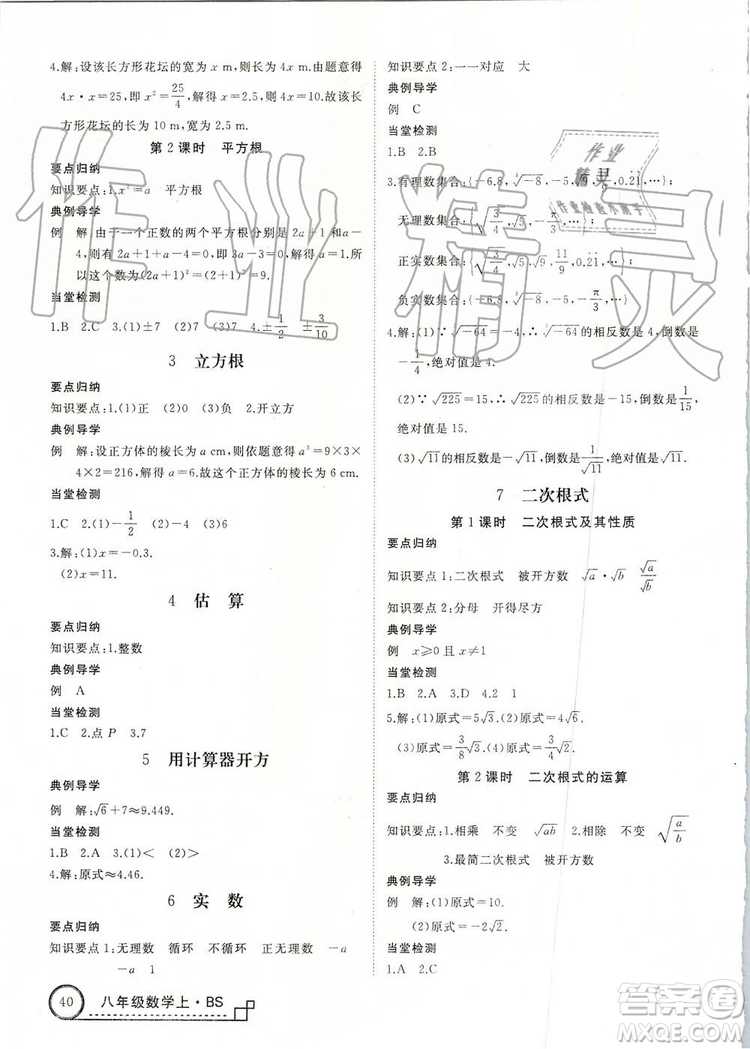 4.解：设该长方形花坛的宽为 x m，则长为 4x m.由题意得
4x·x=25，即 x²=25/4，解得 x=2.5，则 4x=10.故该长
方形花坛的长为 10 m，宽为 2.5 m.
第2课时 平方根
要点归纳
知识要点：1.x²=a 平方根
典例导学
例 解：由于一个正数的两个平方根分别是 2a+1 和 a-
4，则有 2a+1+a-4=0，即 3a-3=0，解得 a=1.所
以这个数为(2a+1)²=(2+1)²=9.
当堂检测
1.B 2.C 3.(1)±7 (2)7 (3)7 4.±1/2 ±3/10
3 立方根
要点归纳
知识要点：1.(1)正 (2)0 (3)负 2.开立方
典例导学
例 解：设正方体的棱长为 a cm，则依题意得 a³=9×3×
4×2=216，解得 a=6.故这个正方体的棱长为 6 cm.
当堂检测
1.C 2.(1)-1/2 (2)-4 (3)6
3.解：(1)x=-0.3.
(2)x=11.
4 估算
要点归纳
知识要点：1.整数
典例导学
例 A
当堂检测
1.C 2.点 P 3.7
5 用计算器开方
典例导学
例 解：√6+7≈9.449.
当堂检测
1.B 2.A 3.(1)< (2)>
4.解：原式≈4.46.
6 实数
要点归纳
知识要点1：无理数 循环 不循环 正无理数 -a
-a 1
40 八年级数学上·BS
知识要点2：一一对应 大
典例导学
例 C
当堂检测
1.B 2.B
3.有理数集合：{-6.8，∛-8，-5，9，0.2̇1̇，…}；
无理数集合：{√(3/4)，√5，
正实数集合：{√(3/4)，√5，9，
负实数集合：{-6.8，∛-8，-5，-π/3，…}
4.解：(1)∵∛-64=-4，∴∛-64的相反数是 4，倒数是
-1/4，绝对值是 4.
(2)∵√225=15，∴√225的相反数是-15，倒数是1/15，
绝对值是 15.
(3)√11的相反数是-√11，倒数是1/√11，绝对值是√11.
7 二次根式
第1课时 二次根式及其性质
要点归纳
知识要点1：二次根式 被开方数 √a·√b √a/√b
知识要点2：分母 开得尽方
典例导学
例 x≥0且x≠1
当堂检测
1.B 2.A 3.D 4.2 1
5.解：(1)原式=5√3. (2)原式=4√6.
(3)原式=3/8√3. (4)原式=3/4√2.
第2课时 二次根式的运算
要点归纳
知识要点：1.相乘 不变 √ab 2.相除 不变 √(a/b)
3.最简二次根式 被开方数
典例导学
例 解：(1)原式=10.
(2)原式=6√2.
当堂检测
1.A 2.C
作业精灵
作业
精灵
答案圈
MXQE.COM